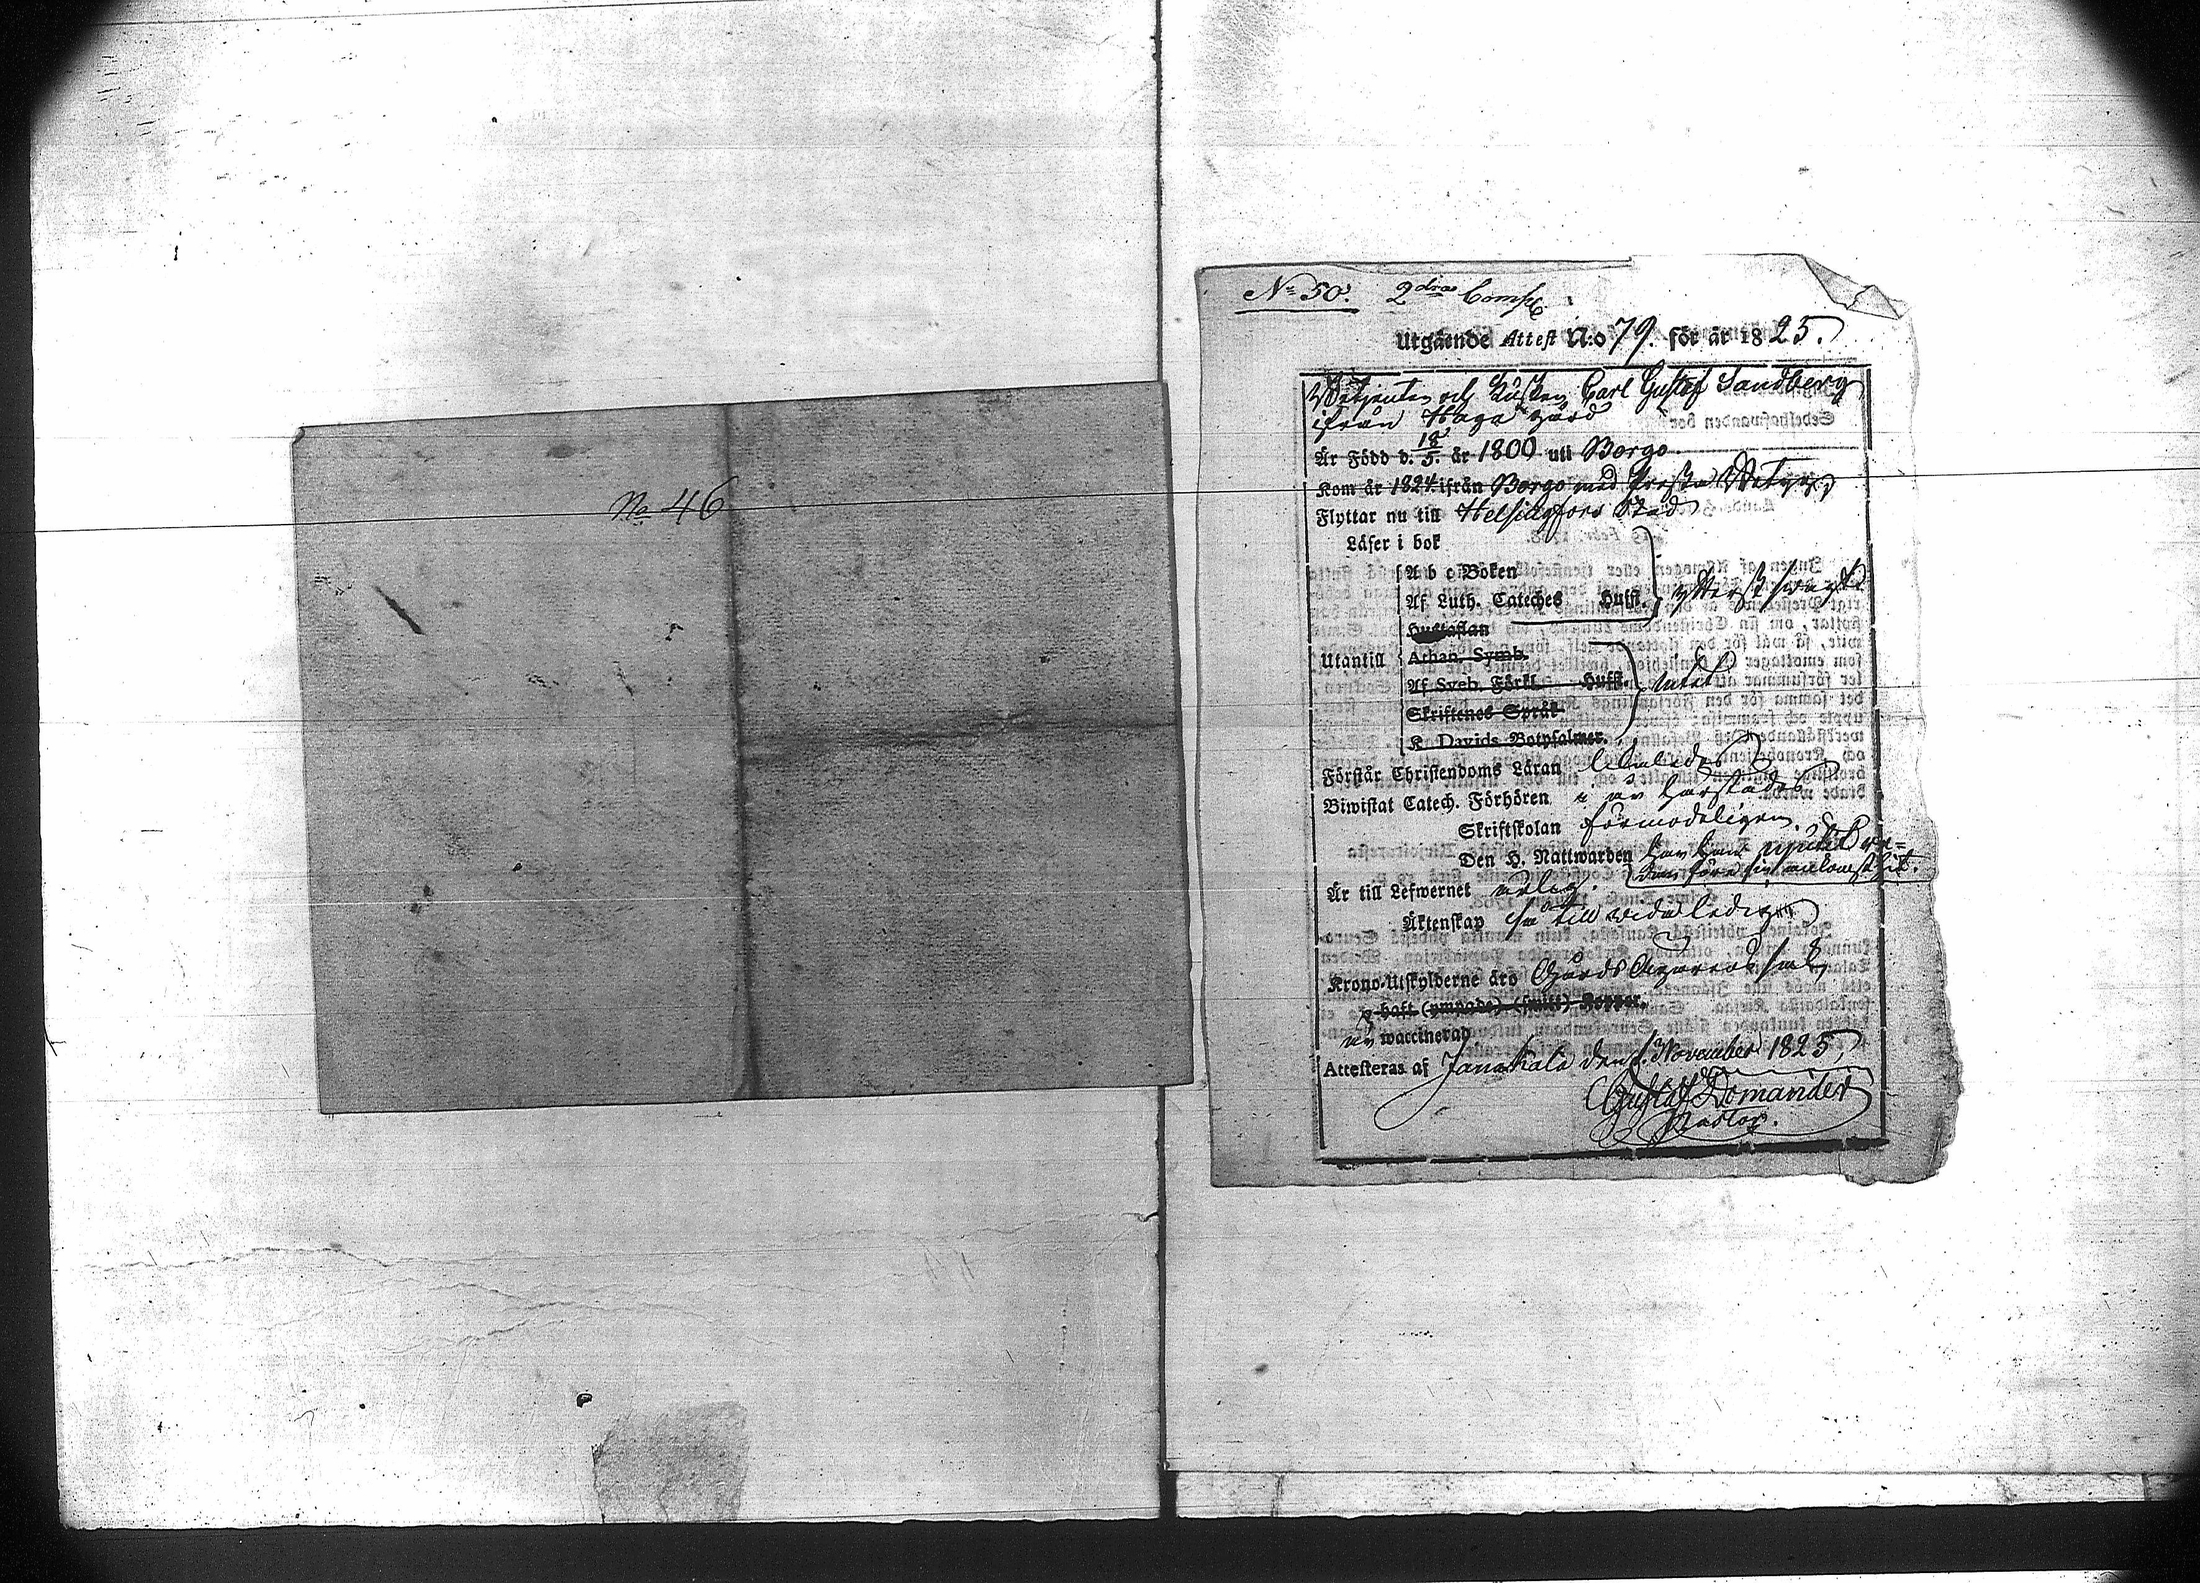 No 46
No 50. 2dra Comp
Utgående Attest N:o 79. för år 1825.
Betjenten och Kusken Carl Gustaf Sandberg
ifrån Haga Gård
Är Född d. 18/5. år 1800 uti Borgo
Kom år 1824 ifrån Borgo med
Flyttar nu till Helsingfors Stad
Läser i bok
A b c Boken
Af Luth. Cateches Hufst. ytterst svagt
Hustaflan
Utantill Athan. Symb.
Af Sveb. Förkl. Hufst. intet
Skriftenes Språk
K. Davids Botpsalmer.
Förstår Christendoms Läran
Biwistat Catech. Förhören
Skriftskolan förmodeligen.
Den H. Nattwarden har han
före sin ankomst hit.
Är till Lefwernet
Äktenskap så till vida ledig
Krono-Utskylderne äro
haft (ympade) (smitt) Koppor.
waccinerad
Attesteras af Janakala den November 1825,
Gustaf Domander
Pastor.